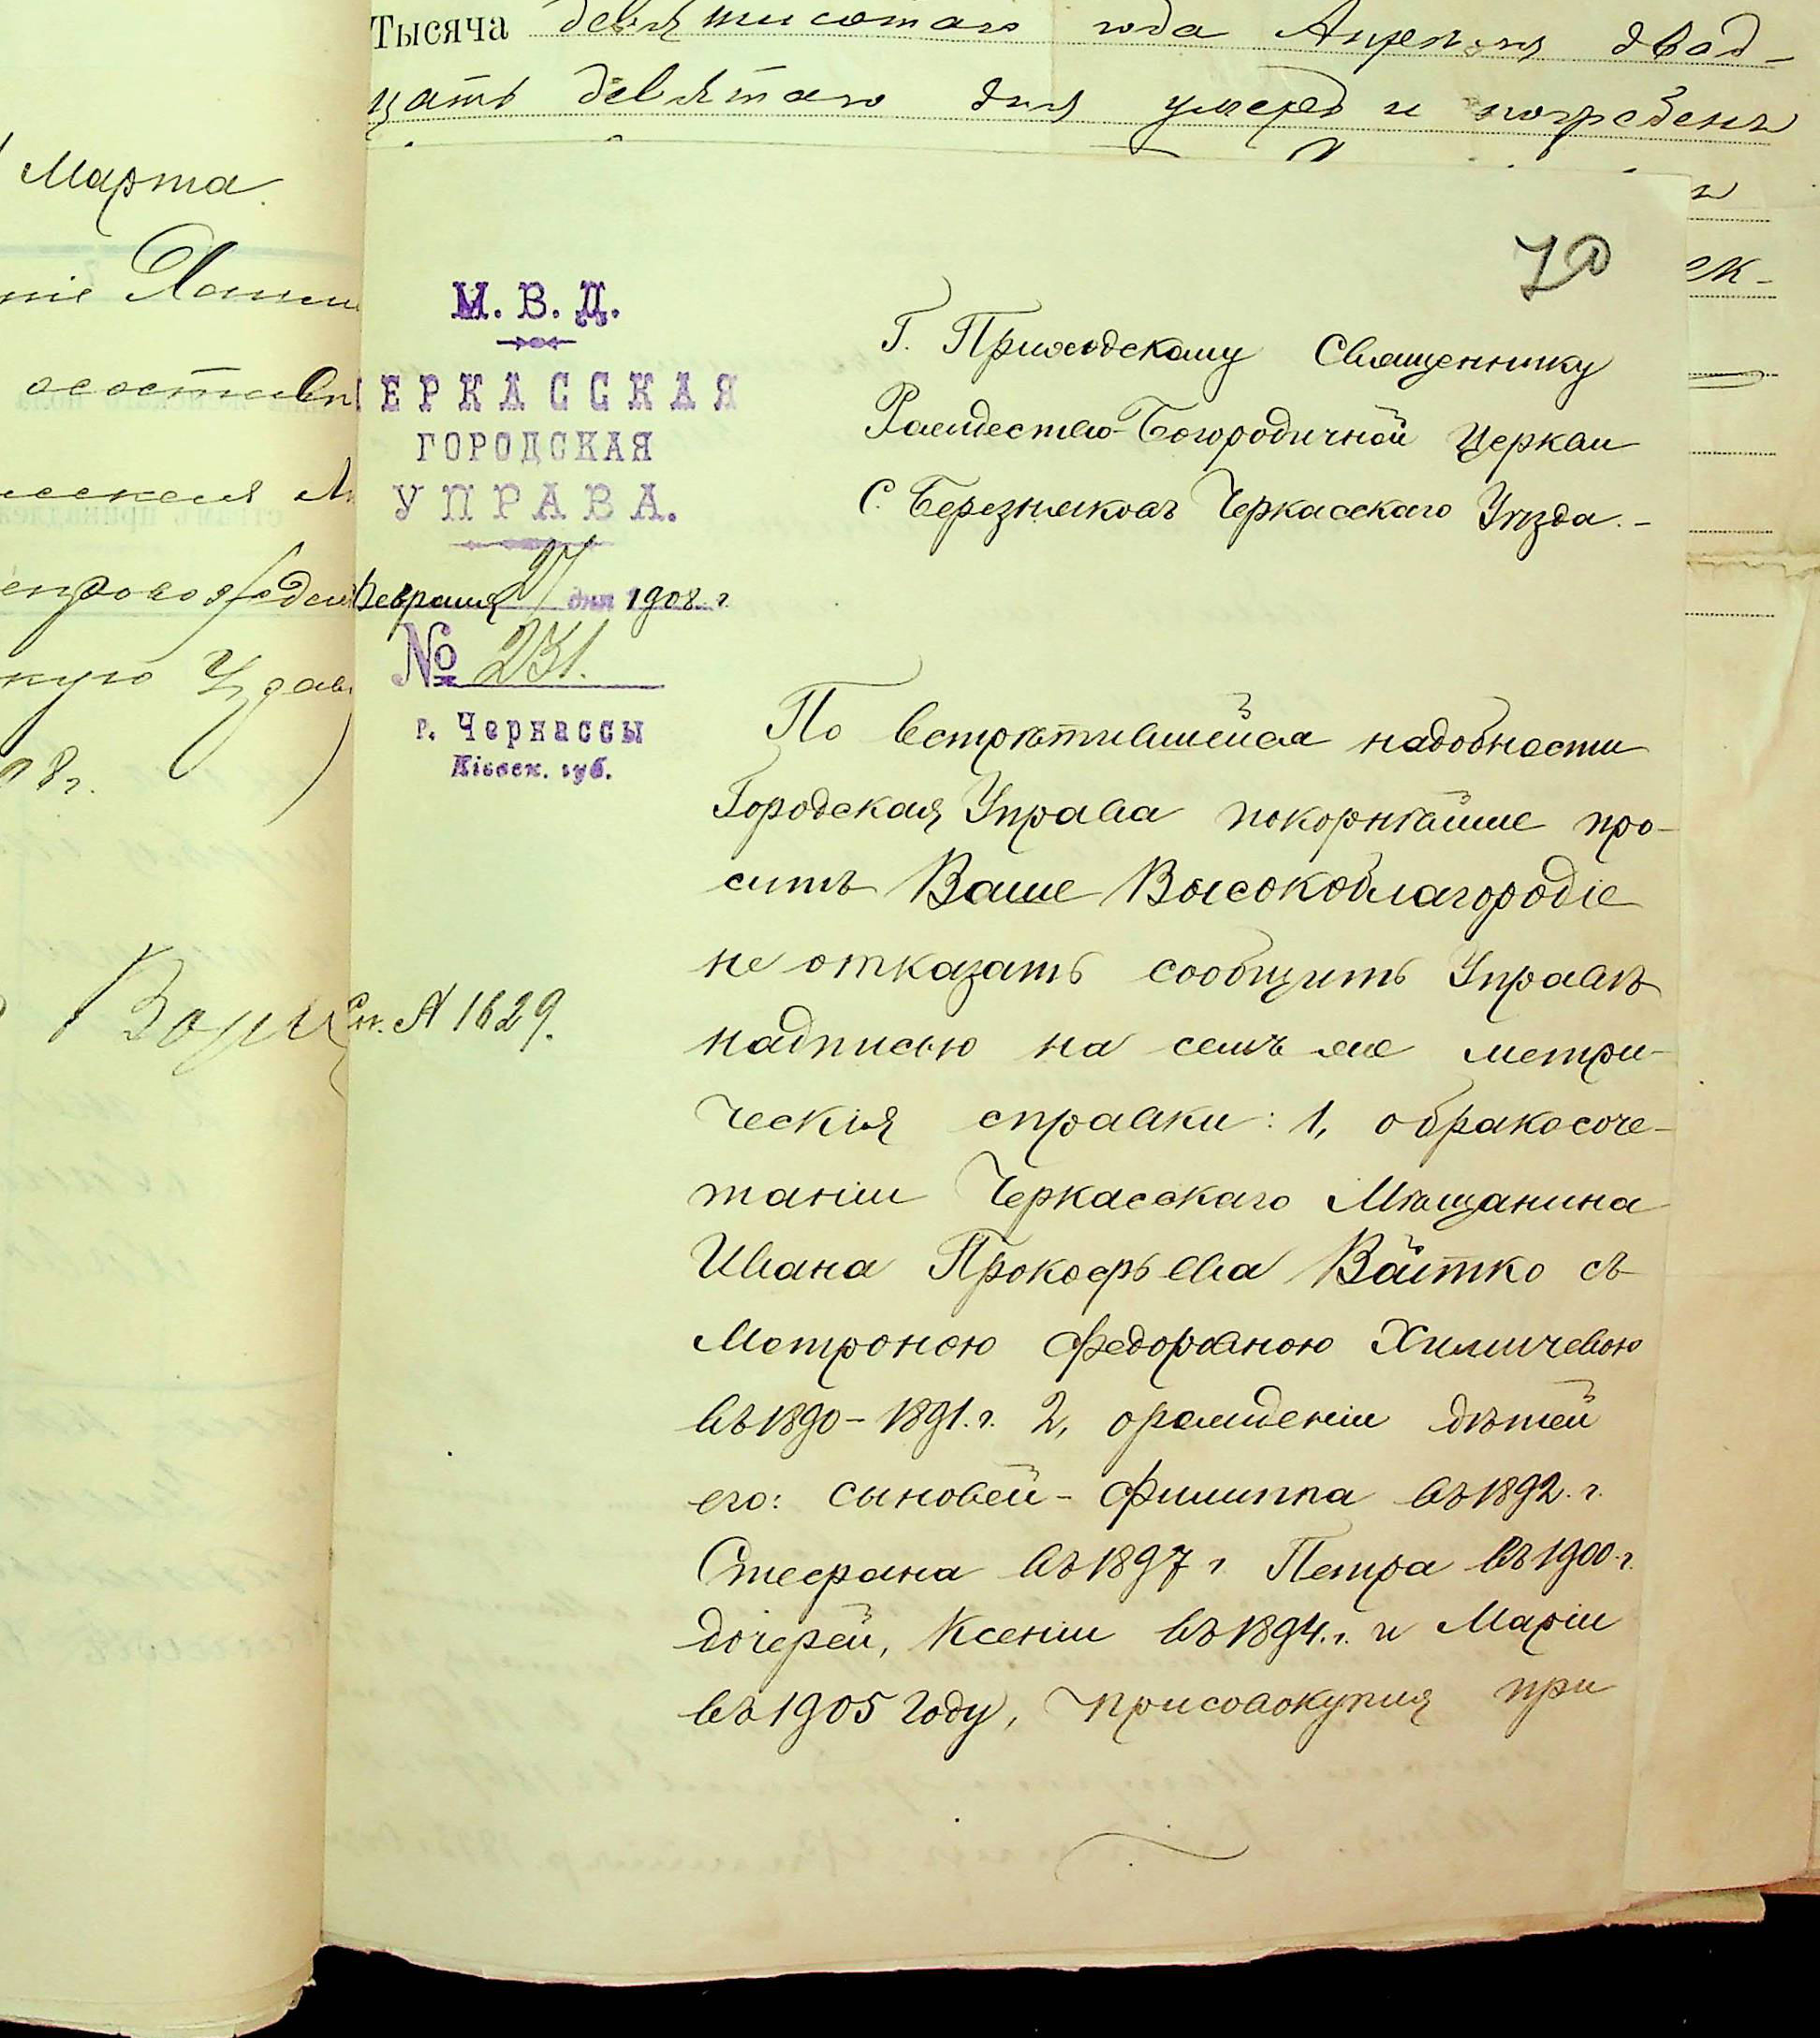 Тысяча девятисотаго года Апреля двад-
цать девятаго дня умеръ и погребенъ
Марта.
ніе
8 г.
ек-
70
М. В. Д.
ЕРКАССКАЯ
ГОРОДСКАЯ
УПРАВА.
Февраля 27 дня 1908. г.
№ 231.
г. Черкассы
Кіевск. губ.
Г. Приходскому Священнику
Рождество-Богородичной Церкви
С. Березняковъ Черкасскаго Уѣзда.-
По встрѣтившейся надобности
Городская Управа покорнѣйше про-
ситъ Ваше Высокоблагородіе
не отказать сообщить Управѣ
надписью на семъ же метри-
ческія справки: 1, о бракосоче-
таніи Черкасскаго Мѣщанина
Ивана Прокофьева Войтко съ
Матроною Федоровною Химичевою
въ 1890-1891. г. 2, о рожденіи дѣтей
его: сыновей- Филиппа въ 1892. г.
Стефана въ 1897 г Петра въ 1900. г.
дочерей, Ксеніи въ 1894. г. и Маріи
въ 1905 году, присовокупия при
А 1629.